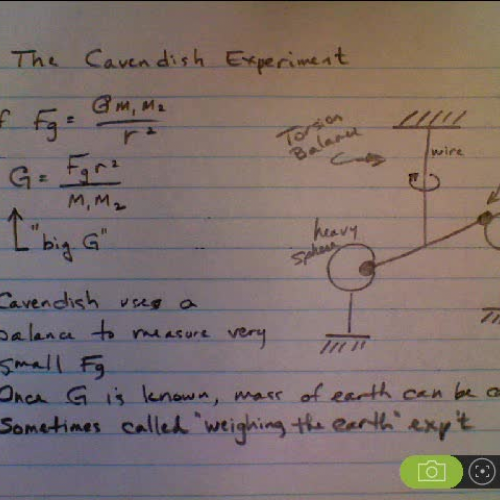 The Cavendish Experiment
f Fg = G m₁ m₂ / r²
G = Fg r² / M₁ M₂
"big G"
Torsion
Balance
wire
heavy
sphere
Cavendish uses a
balance to measure very
small Fg
Once G is known, mass of earth can be c
Sometimes called "weighing the earth" exp't